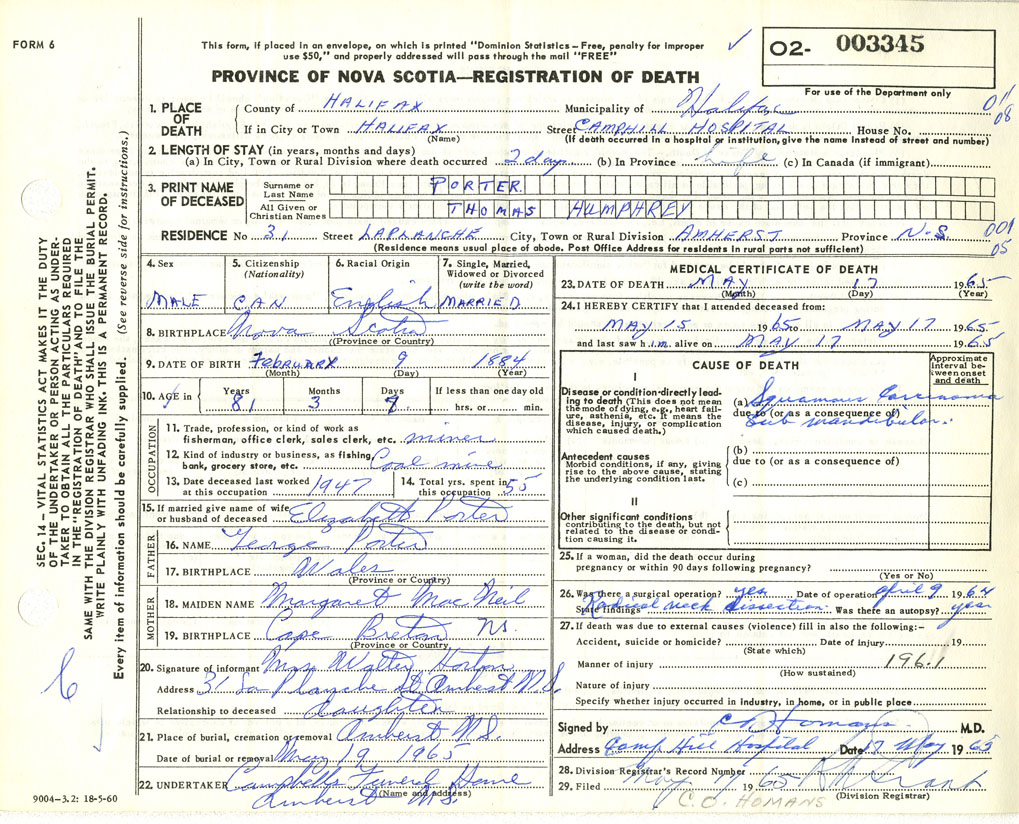 FORM 6
This form, if placed in an envelope, on which is printed "Dominion Statistics – Free, penalty for improper
use $50," and properly addressed will pass through the mail "FREE"
PROVINCE OF NOVA SCOTIA—REGISTRATION OF DEATH
O2- 003345
For use of the Department only
011
08
1. PLACE OF DEATH County of HALIFAX Municipality of Halifax
If in City or Town HALIFAX Street CAMPHILL HOSPITAL House No.
(Name) (If death occurred in a hospital or institution, give the name instead of street and number)
2. LENGTH OF STAY (in years, months and days)
(a) In City, Town or Rural Division where death occurred 2 days (b) In Province Life (c) In Canada (if immigrant)
3. PRINT NAME OF DECEASED Surname or Last Name PORTER
All Given or Christian Names THOMAS HUMPHREY
RESIDENCE No 31 Street LAPLANCHE City, Town or Rural Division AMHERST Province N.S. 001
05
(Residence means usual place of abode. Post Office Address for residents in rural parts not sufficient)
4. Sex 5. Citizenship (Nationality) 6. Racial Origin 7. Single, Married, Widowed or Divorced (write the word)
MALE CAN English MARRIED
8. BIRTHPLACE Nova Scotia
(Province or Country)
9. DATE OF BIRTH FEBRUARY 9 1884
(Month) (Day) (Year)
10. AGE in Years Months Days If less than one day old
81 3 hrs. or min.
OCCUPATION
11. Trade, profession, or kind of work as
fisherman, office clerk, sales clerk, etc. miner
12. Kind of industry or business, as fishing,
bank, grocery store, etc. Coal mine
13. Date deceased last worked at this occupation 1947 14. Total yrs. spent in this occupation 55
15. If married give name of wife
or husband of deceased Elizabeth Porter
FATHER
16. NAME George Porter
17. BIRTHPLACE Wales
(Province or Country)
MOTHER
18. MAIDEN NAME Margaret MacNeil
19. BIRTHPLACE Cape Breton NS.
(Province or Country)
20. Signature of informant Mrs Walter Horton
Address 31 La Planche St Amherst N.S.
Relationship to deceased daughter
21. Place of burial, cremation or removal Amherst N.S.
Date of burial or removal May 19 1965
22. UNDERTAKER Campbells Funeral Home
(Name and address)
Amherst N.S.
9004–3.2: 18-5-60
MEDICAL CERTIFICATE OF DEATH
23. DATE OF DEATH MAY 17 1965
(Month) (Day) (Year)
24. I HEREBY CERTIFY that I attended deceased from:
MAY 15 1965 to MAY 17 1965
and last saw him alive on MAY 17 1965
CAUSE OF DEATH
Approximate interval between onset and death
I
Disease or condition directly leading to death (This does not mean the mode of dying, e.g., heart failure, asthenia, etc. It means the disease, injury, or complication which caused death.)
(a) Squamous Carcinoma
due to (or as a consequence of)
Sub mandibular.
Antecedent causes
Morbid conditions, if any, giving rise to the above cause, stating the underlying condition last.
(b)
due to (or as a consequence of)
(c)
II
Other significant conditions
contributing to the death, but not related to the disease or condition causing it.
25. If a woman, did the death occur during
pregnancy or within 90 days following pregnancy?
(Yes or No)
26. Was there a surgical operation? yes Date of operation April 9 1964
State findings Radical neck dissection. Was there an autopsy? yes
27. If death was due to external causes (violence) fill in also the following:–
Accident, suicide or homicide? Date of injury 19
(State which)
Manner of injury 196.1
(How sustained)
Nature of injury
Specify whether injury occurred in industry, in home, or in public place
Signed by C O Homans M.D.
Address Camp Hill Hospital Date 17 May 1965
28. Division Registrar's Record Number
29. Filed May 1965
(Division Registrar)
C. O. HOMANS
SEC. 14 – VITAL STATISTICS ACT MAKES IT THE DUTY
OF THE UNDERTAKER OR PERSON ACTING AS UNDER-
TAKER TO OBTAIN ALL THE PARTICULARS REQUIRED
IN THE "REGISTRATION OF DEATH" AND TO FILE THE
SAME WITH THE DIVISION REGISTRAR WHO SHALL ISSUE THE BURIAL PERMIT.
WRITE PLAINLY WITH UNFADING INK. THIS IS A PERMANENT RECORD.
Every item of information should be carefully supplied. (See reverse side for instructions.)